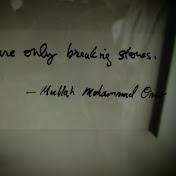 are only breaking stones.
— Mullah Mohammad Omar